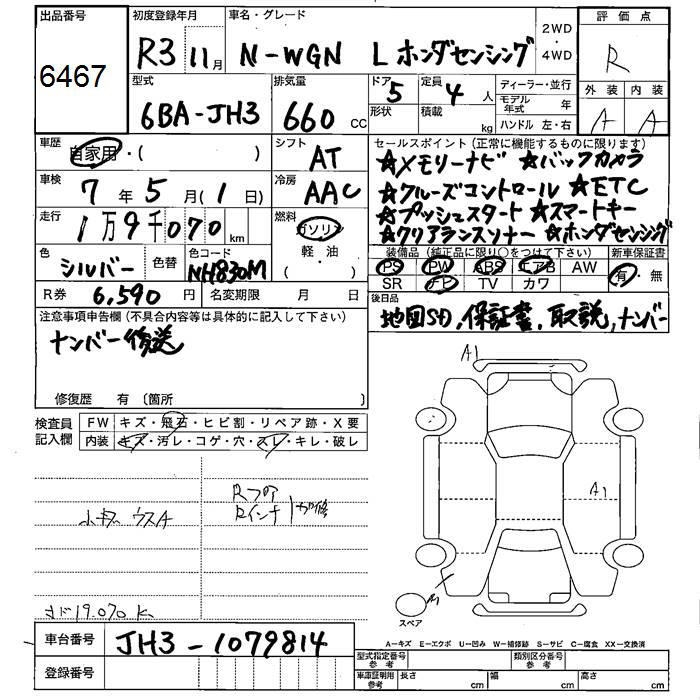 出品番号
6467
初度登録年月
R3 11月
車名・グレード
N-WGN L ホンダセンシング
2WD
・
4WD
評価点
R
外装 内装
A A
型式
6BA-JH3
排気量
660 cc
ドア 5
形状
定員 4 人
積載 kg
ディーラー・並行
モデル年式 年
ハンドル 左・右
車歴
自家用・( )
シフト AT
車検
7年5月(1日)
冷房 AAC
走行
1万9千070km
燃料
ガソリン
・
軽油
色 シルバー 色替
色コード NH830M
R券 6,590円 名変期限 月 日
セールスポイント(正常に機能するものに限ります)
☆メモリーナビ ☆バックカメラ
☆クルーズコントロール ☆ETC
☆プッシュスタート ☆スマートキー
☆クリアランスソナー ☆ホンダセンシング
装備品(純正品に限り○をつけて下さい) 新車保証書
PS PW ABS エアB AW
SR ナビ TV カワ
有・無
後日品
地図SD,保証書,取説,ナンバー
注意事項申告欄(不具合内容等は具体的に記入して下さい)
ナンバー後送
修復歴 有(箇所
検査員記入欄
FW キズ・飛石・ヒビ割・リペア跡・X要
内装 キズ・汚レ・コゲ・穴・スレ・キレ・破レ
小キズ ウスA
Rフロア
Rインナー
メーター19.070K
A1
A1
スペア
A-キズ E-エクボ U-凹み W-補修跡 S-サビ C-腐食 XX-交換済
車台番号 JH3-1079814
登録番号
型式指定番号 参考
類別区分番号 参考
車庫証明用 参考 長さ cm 幅 cm 高さ cm